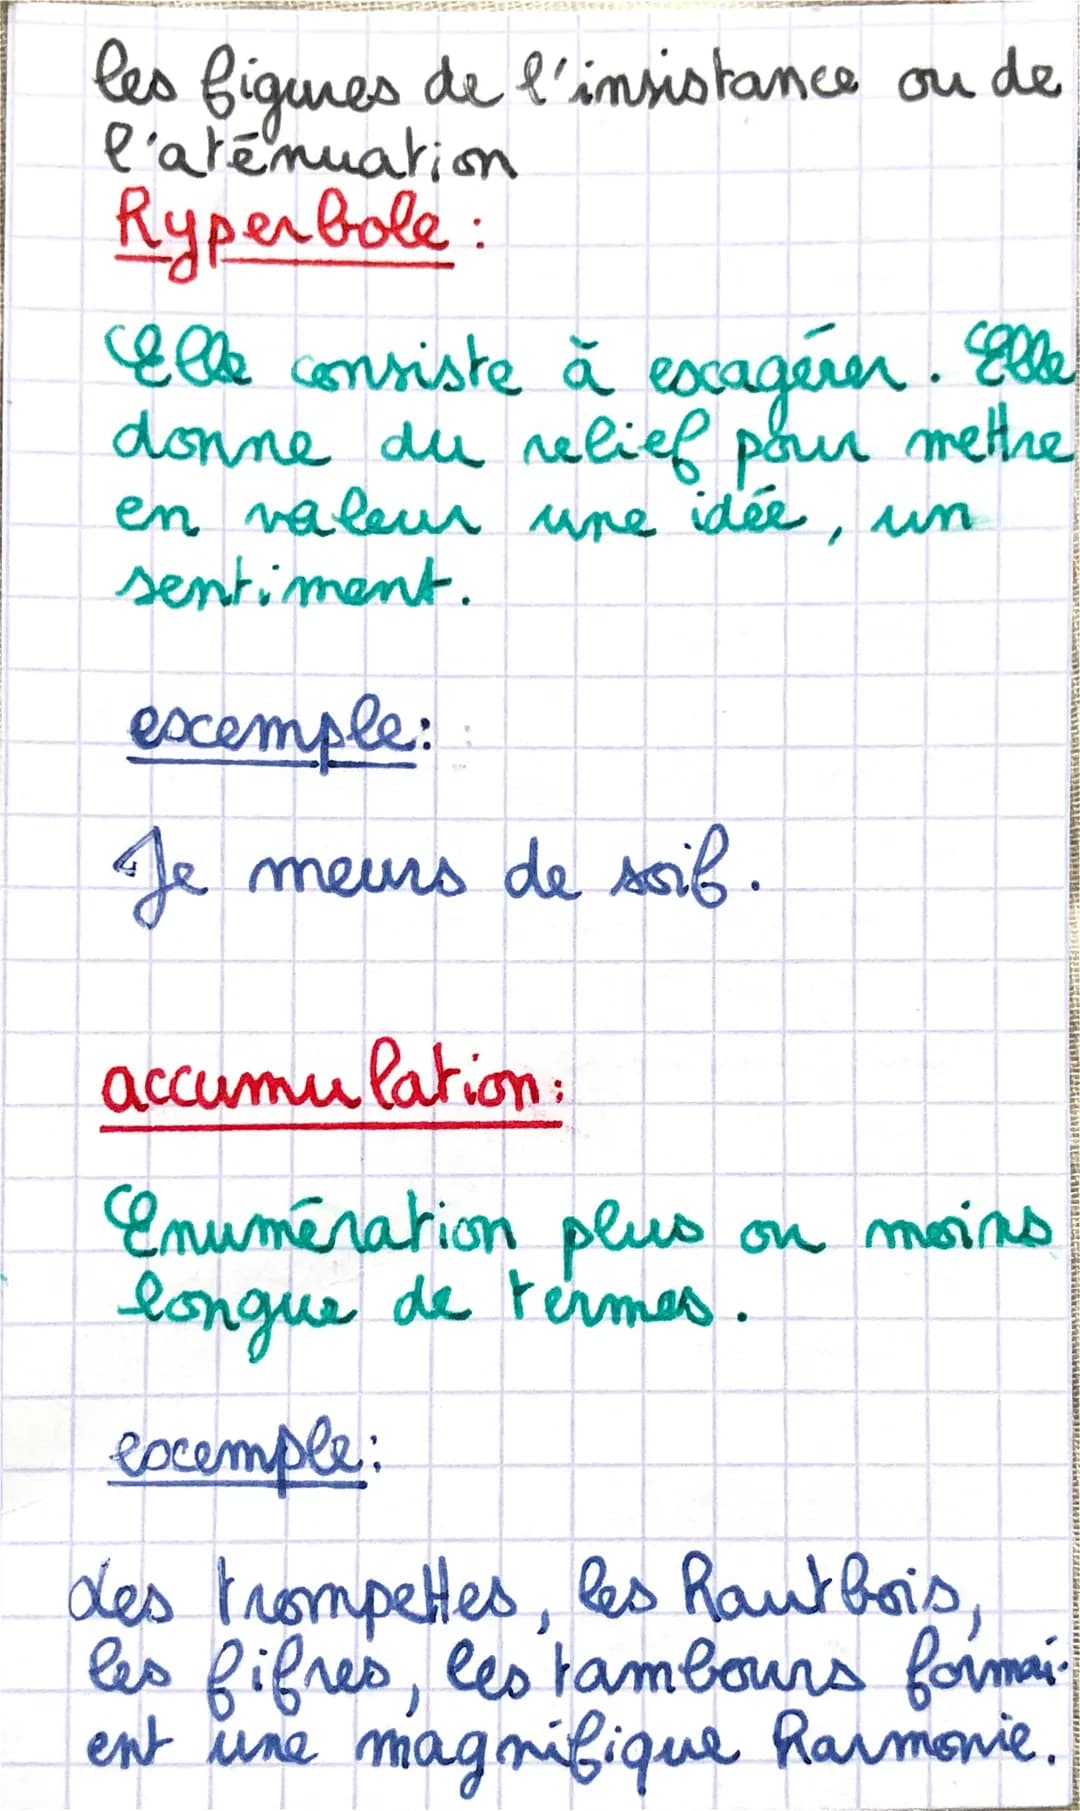 les figures de l'insistance ou de
l'aténuation
Hyperbole :
Elle consiste à exagérer. Elle
donne du relief pour mettre
en valeur une idée, un
sentiment.
exemple:
Je meurs de soif.
accumulation:
Enumération plus ou moins
longue de termes.
exemple:
des trompettes, les hautbois,
les fifres, les tambours formai-
ent une magnifique harmonie.